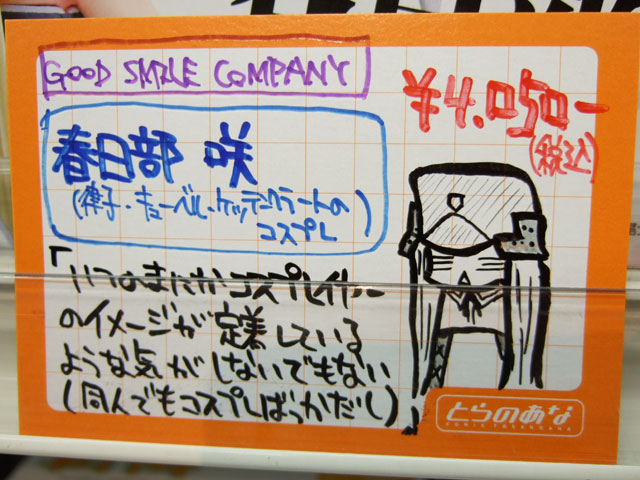 GOOD SMILE COMPANY
¥4.050-
(税込)
春日部 咲
(律子・キューベル・ケッテンクラートの
コスプレ)
「いつのまにかコスプレイヤー
のイメージが定着している
ような気がしないでもない
(同人でもコスプレばっかだし)
とらのあな
COMIC TORANOANA